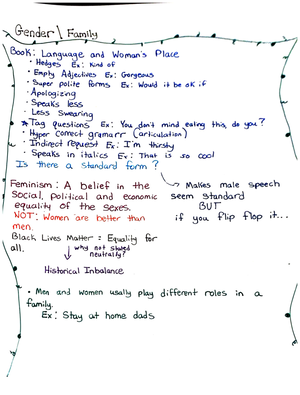 Gender | Family
Book: Language and Woman's Place
· Hedges Ex: Kind of
· Empty Adjectives Ex: Gorgeous
· Super polite forms Ex: Would it be ok if
· Apologizing
· Speaks less
· Less Swearing
* Tag questions Ex: You don't mind eating this, do you?
· Hyper correct gramarr (articulation)
· Indirect request Ex: I'm thirsty
· Speaks in italics Ex: That is so cool
Is there a standard form?
Makes male speech
seem standard
BUT
if you flip flop it...
Feminism: A belief in the
Social, political and economic
equality of the sexes.
NOT: Women are better than
men.
Black Lives Matter = Equality for
all.
why not stated
neutrally?
Historical Inbalance
· Men and women usally play different roles in a
family.
Ex: Stay at home dads